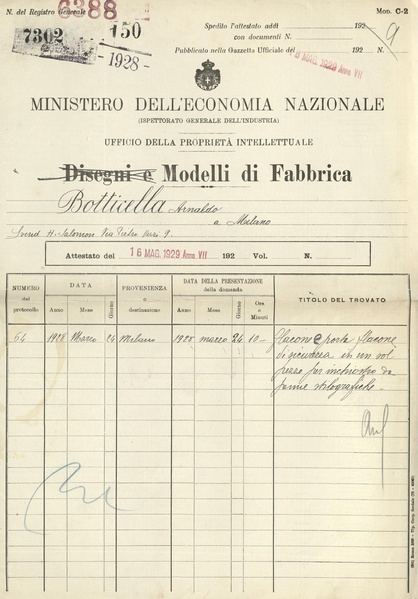 N. del Registro Generale 6388
7302
150
-1928-
Mod. C-2
Spedito l'attestato addì 192
con documenti N.
9
Pubblicato nella Gazzetta Ufficiale del 192 N.
MAG. 1929 Anno VII
MINISTERO DELL'ECONOMIA NAZIONALE
(ISPETTORATO GENERALE DELL'INDUSTRIA)
UFFICIO DELLA PROPRIETÀ INTELLETTUALE
Disegni e Modelli di Fabbrica
Botticella Arnaldo
a Milano
H. Salomon Via Pietro 9.
Attestato del 16 MAG. 1929 Anno VII 192 Vol. N.
NUMERO del protocollo
DATA
Anno Mese Giorno
PROVENIENZA o destinazione
DATA DELLA PRESENTAZIONE della domanda
Anno Mese Giorno Ora e Minuti
TITOLO DEL TROVATO
64 1928 Marzo 24 Milano 1928 marzo 24 10- Flacone e porta flacone
di sicurezza in un sol
pezzo per inchiostro da
penne stilografiche.